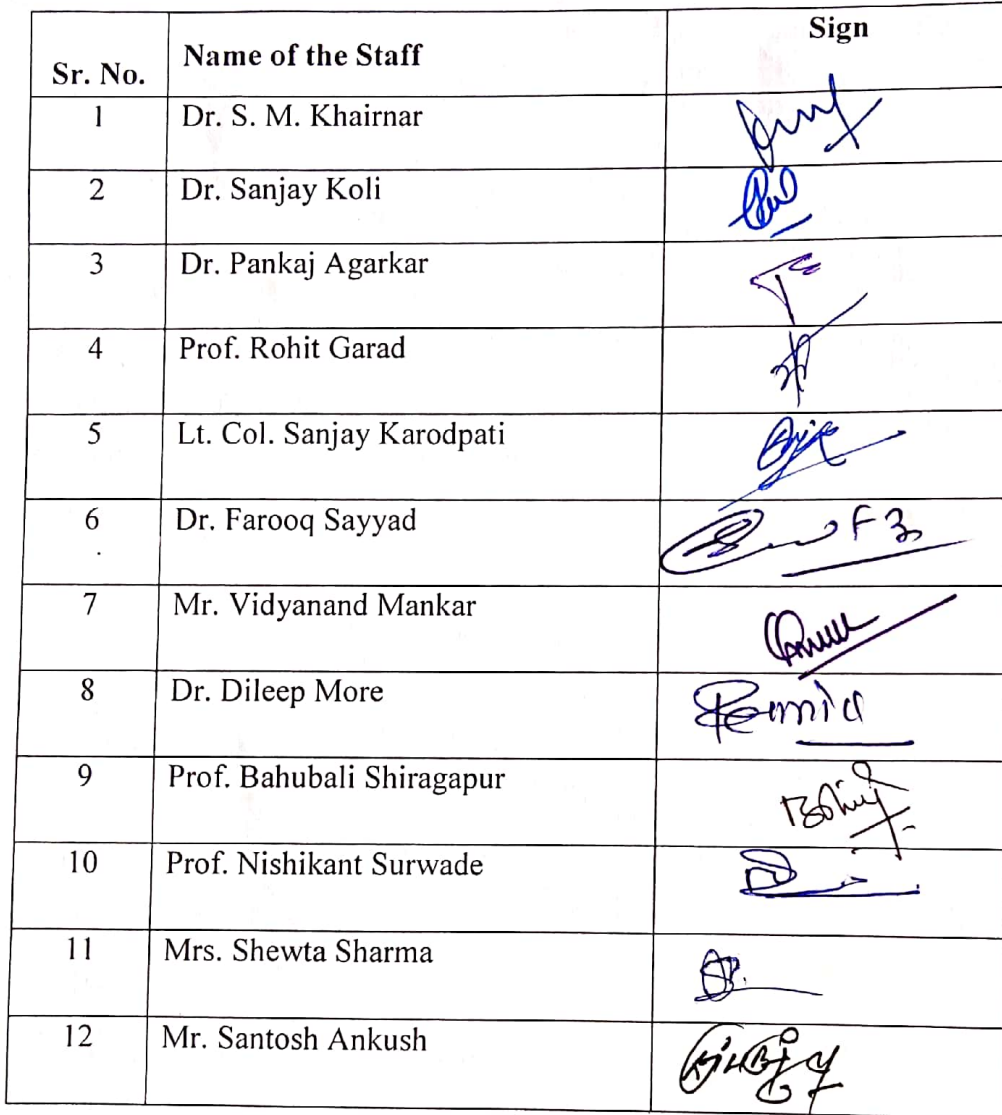 Sr. No. Name of the Staff Sign
1 Dr. S. M. Khairnar
2 Dr. Sanjay Koli
3 Dr. Pankaj Agarkar
4 Prof. Rohit Garad
5 Lt. Col. Sanjay Karodpati
6 Dr. Farooq Sayyad
7 Mr. Vidyanand Mankar
8 Dr. Dileep More
9 Prof. Bahubali Shiragapur
10 Prof. Nishikant Surwade
11 Mrs. Shewta Sharma
12 Mr. Santosh Ankush